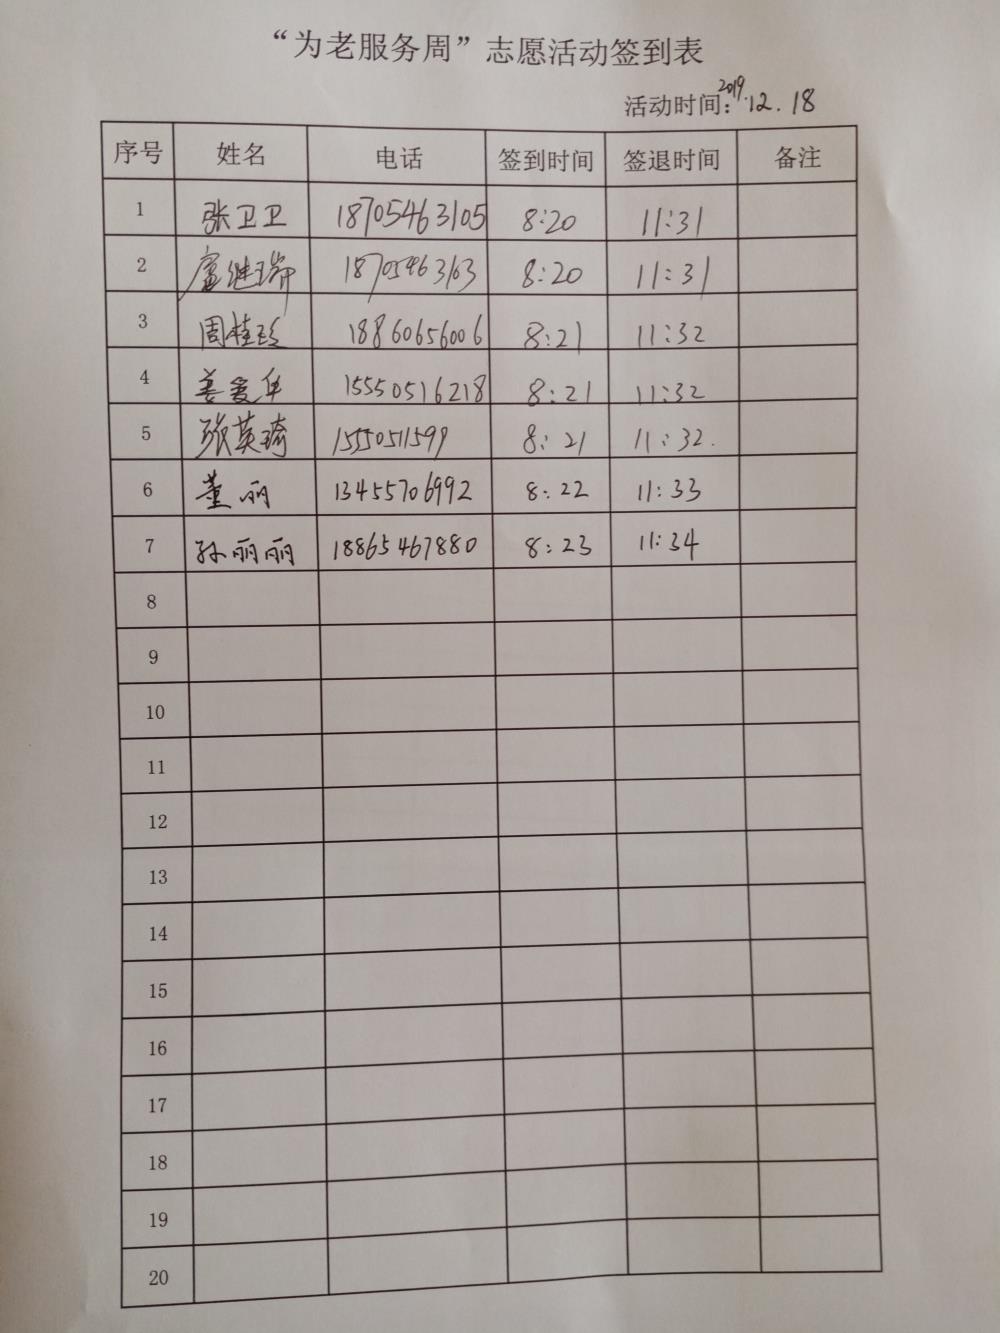 “为老服务周”志愿活动签到表
活动时间：2019.12.18
序号 姓名 电话 签到时间 签退时间 备注
1 张卫卫 18705463105 8:20 11:31
2 18705463163 8:20 11:31
3 周桂珍 18860656006 8:21 11:32
4 姜爱华 15550516218 8:21 11:32
5 张英琦 1555051159 8:21 11:32.
6 董丽 13455706992 8:22 11:33
7 孙丽丽 18865467880 8:23 11:34
8
9
10
11
12
13
14
15
16
17
18
19
20